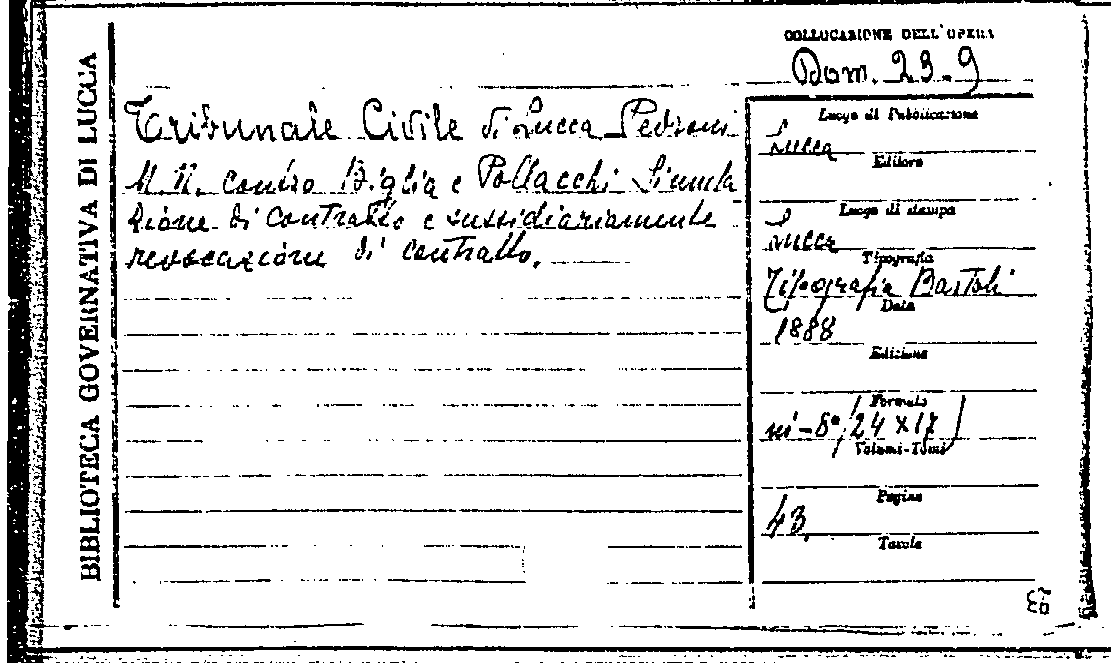 BIBLIOTECA GOVERNATIVA DI LUCCA
COLLOCAZIONE DELL'OPERA
Dom. 23.9
Tribunale Civile di Lucca Pedroni
M. N. contro Biglia e Pollacchi Simula
zione di contratto e sussidiariamente
revocazione di contratto.
Luogo di Pubblicazione
Lucca
Editore
Luogo di stampa
Lucca
Tipografia
Tipografia Bastoli
Data
1888
Edizione
Formato
in-8° (24 x 17)
Volumi-Tomi
Pagine
43.
Tavole